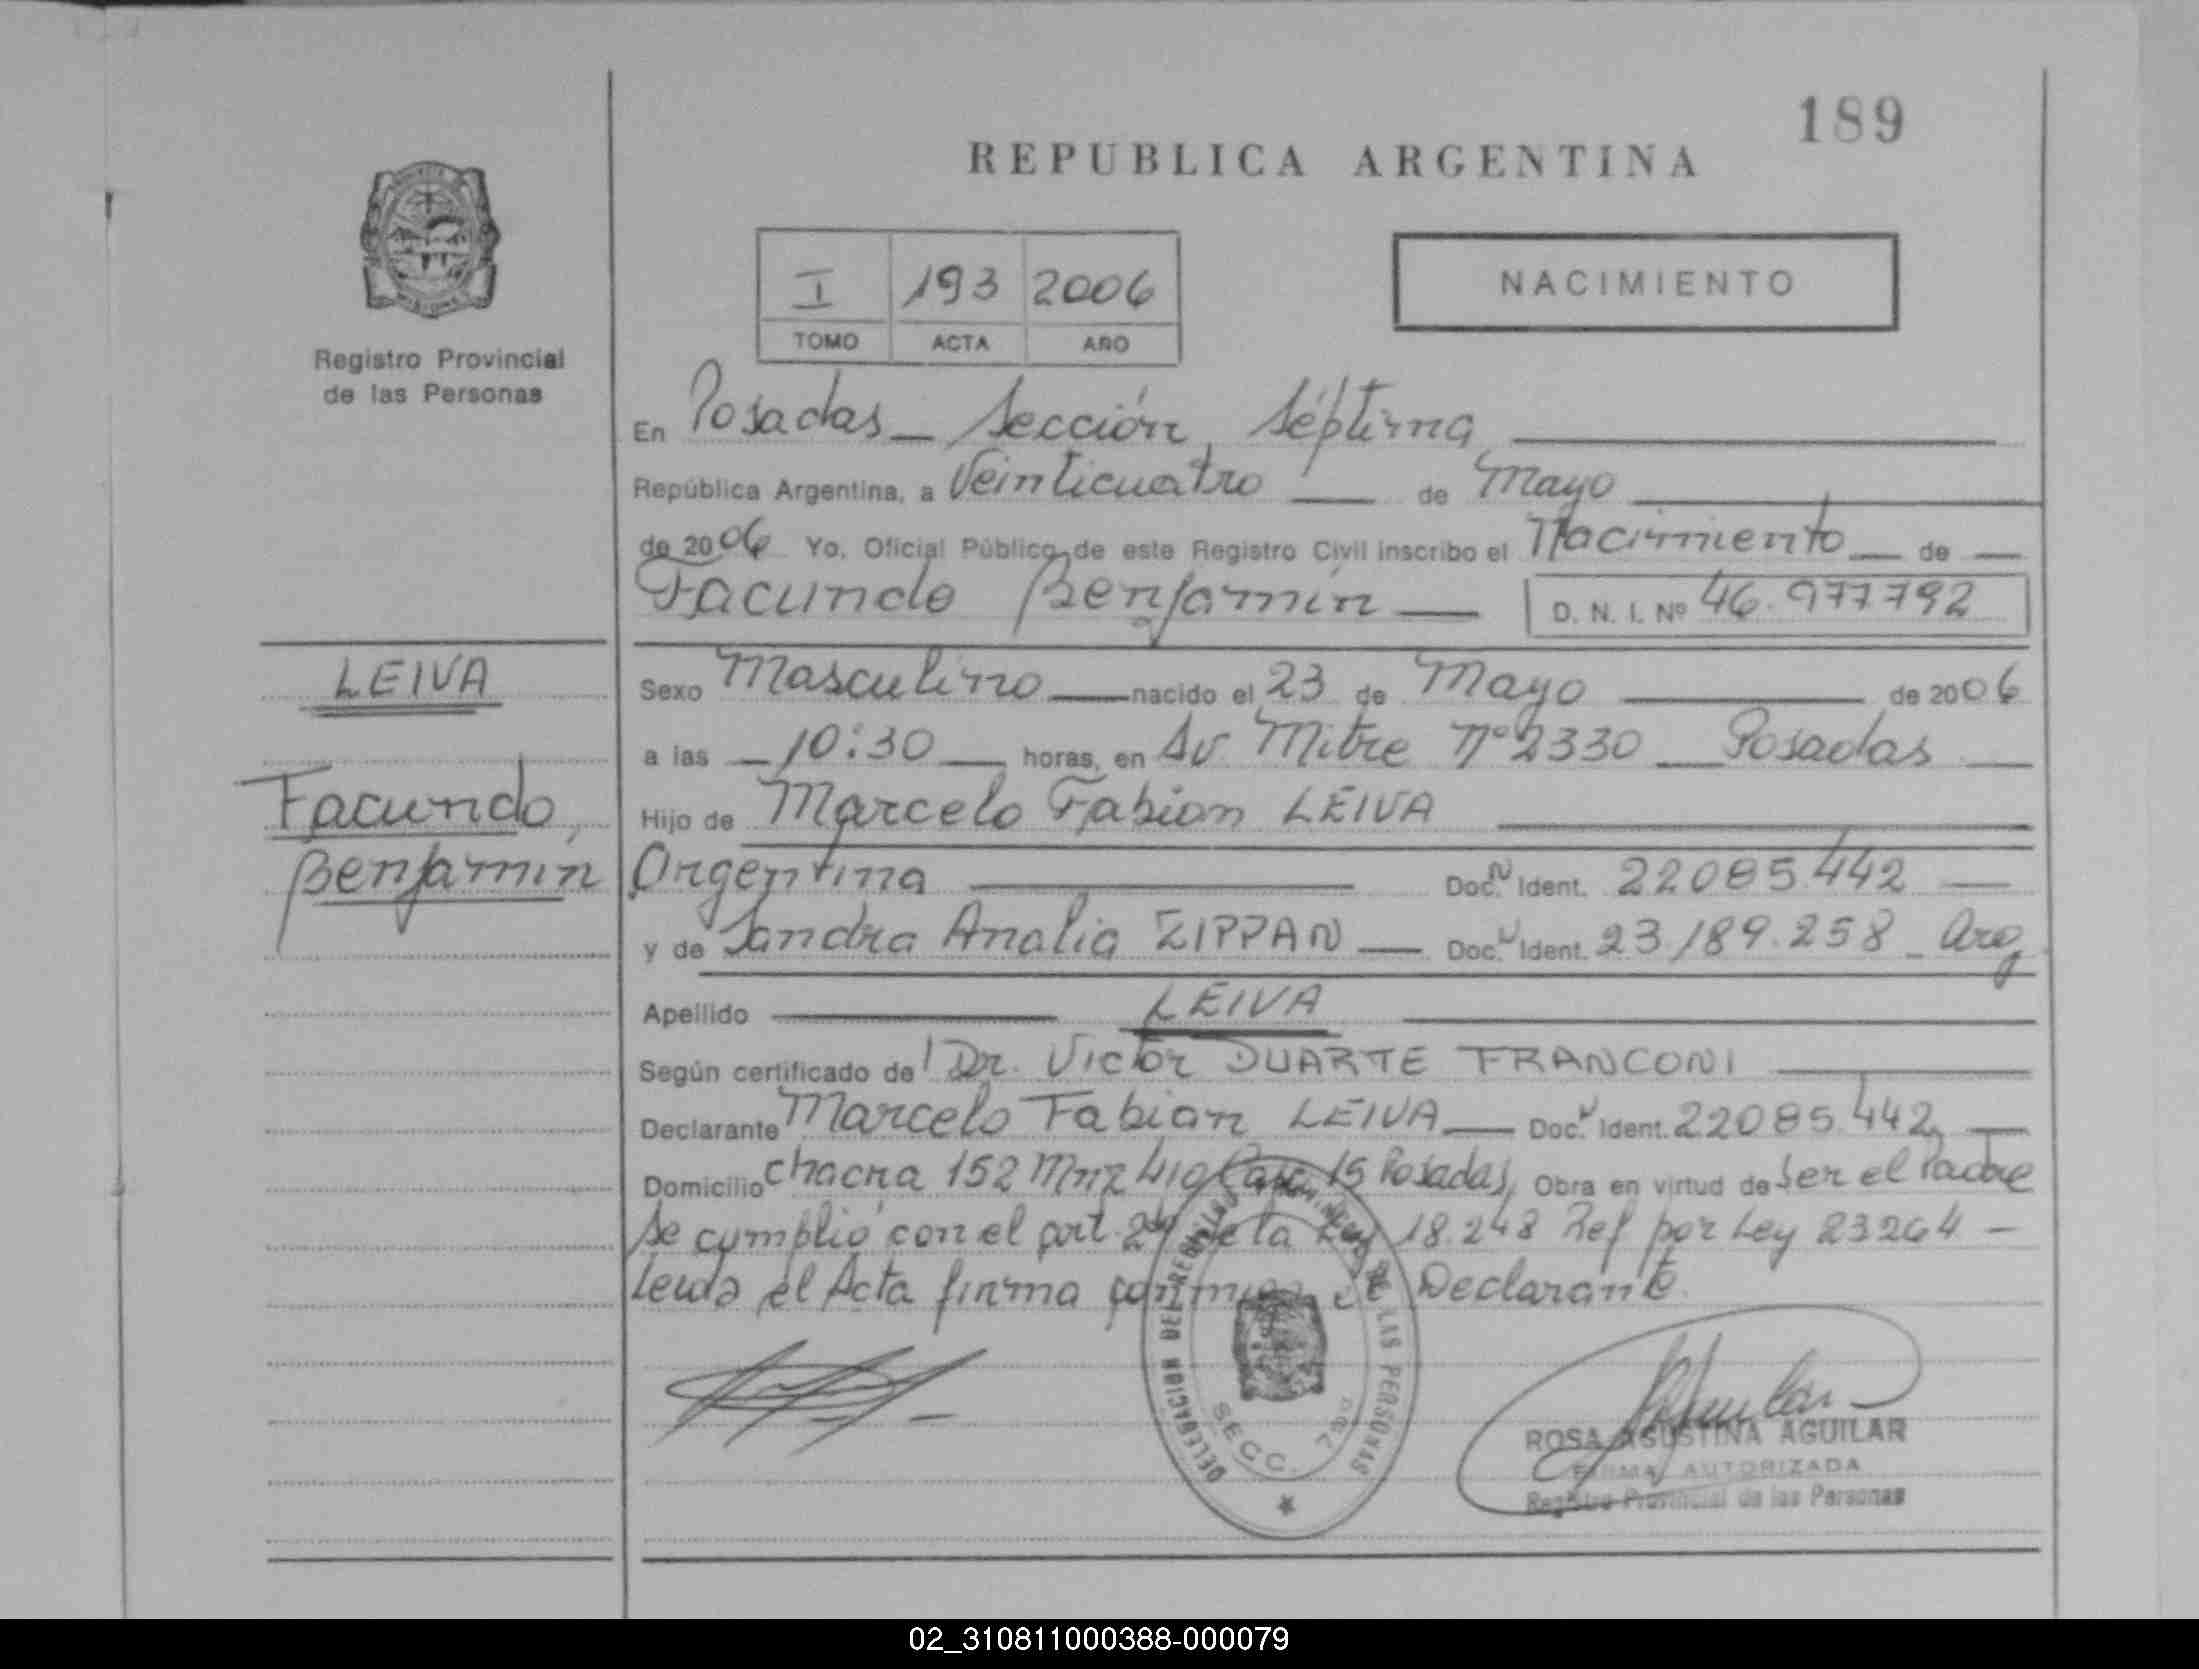 189
REPUBLICA ARGENTINA
I 193 2006
TOMO ACTA AÑO
NACIMIENTO
Registro Provincial
de las Personas
En Posadas - Sección Séptima
República Argentina, a Veinticuatro de Mayo
de 2006 Yo, Oficial Público de este Registro Civil inscribo el Nacimiento de
Facundo Benjamin D. N. I. Nº 46.977792
LEIVA
Sexo Masculino nacido el 23 de Mayo de 2006
a las 10:30 horas, en Av. Mitre Nº 2330 Posadas
Facundo,
Hijo de Marcelo Fabian LEIVA
Benjamin
Argentina Doc. N Ident. 22085.442
y de Sandra Analia ZIPPAN Doc. N Ident. 23.189.258 - Arg
Apellido LEIVA
Según certificado del Dr. Victor DUARTE FRANCONI
Declarante Marcelo Fabian LEIVA Doc. N Ident. 22085.442
Domicilio chacra 152 Mnz 410 Casa 15 Posadas, Obra en virtud de Ser el Padre
Se cumplió con el art. de la Ley 18.248 Ref por Ley 23264 -
Leida el Acta firma conmigo el Declarante.
DELEGACION DEL REGISTRO DE LAS PERSONAS
SECC. 7
ROSA AGUSTINA AGUILAR
FIRMA AUTORIZADA
Registro Provincial de las Personas
02_310811000388-000079